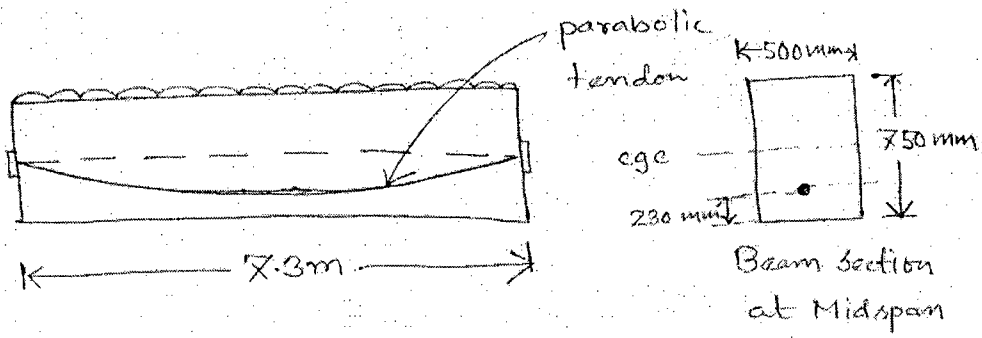 parabolic
tendon
500mm
cgc
750 mm
230 mm
7.3m
Beam section
at Midspan